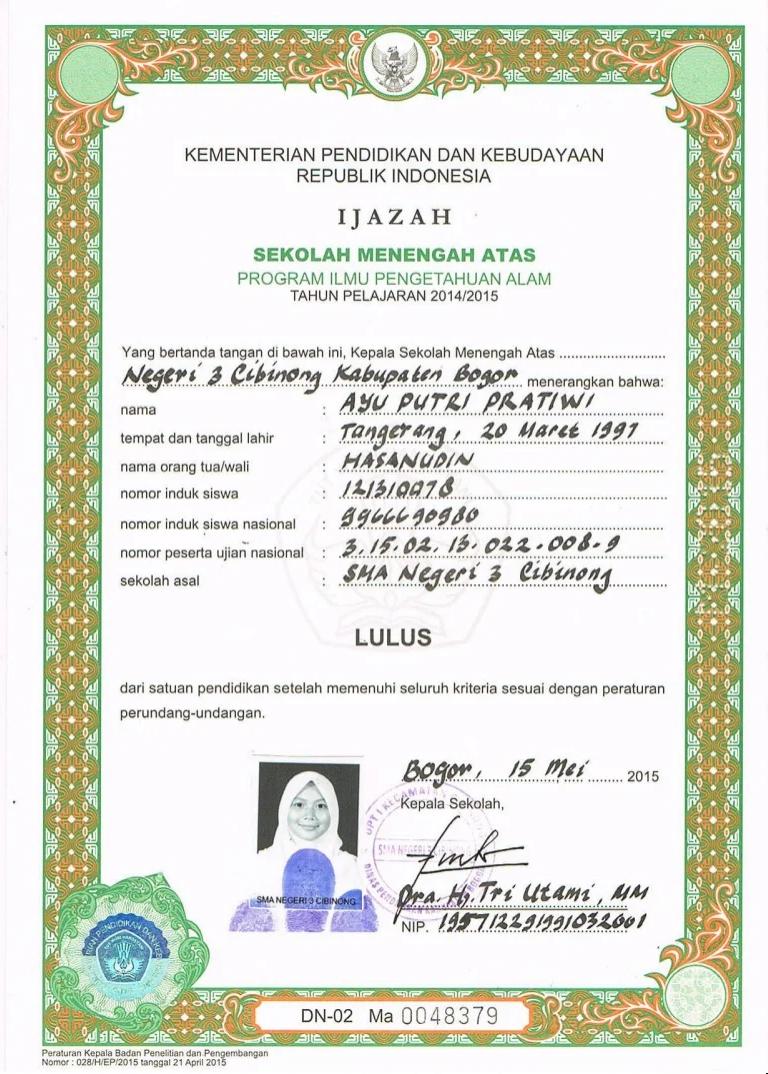 KEMENTERIAN PENDIDIKAN DAN KEBUDAYAAN
REPUBLIK INDONESIA
IJAZAH
SEKOLAH MENENGAH ATAS
PROGRAM ILMU PENGETAHUAN ALAM
TAHUN PELAJARAN 2014/2015
Yang bertanda tangan di bawah ini, Kepala Sekolah Menengah Atas
Negeri 3 Cibinong Kabupaten Bogor menerangkan bahwa:
nama : AYU PUTRI PRATIWI
tempat dan tanggal lahir : Tangerang, 20 Maret 1997
nama orang tua/wali : HASANUDIN
nomor induk siswa : 121310078
nomor induk siswa nasional : 9966690980
nomor peserta ujian nasional : 3.15.02.13.022.008.9
sekolah asal : SMA Negeri 3 Cibinong
LULUS
dari satuan pendidikan setelah memenuhi seluruh kriteria sesuai dengan peraturan
perundang-undangan.
Bogor, 15 Mei 2015
Kepala Sekolah,
SMA NEGERI 3 CIBINONG
Dra. Hj. Tri Utami, MM
NIP. 195712291991032001
DN-02 Ma 0048379
Peraturan Kepala Badan Penelitian dan Pengembangan
Nomor : 028/H/EP/2015 tanggal 21 April 2015